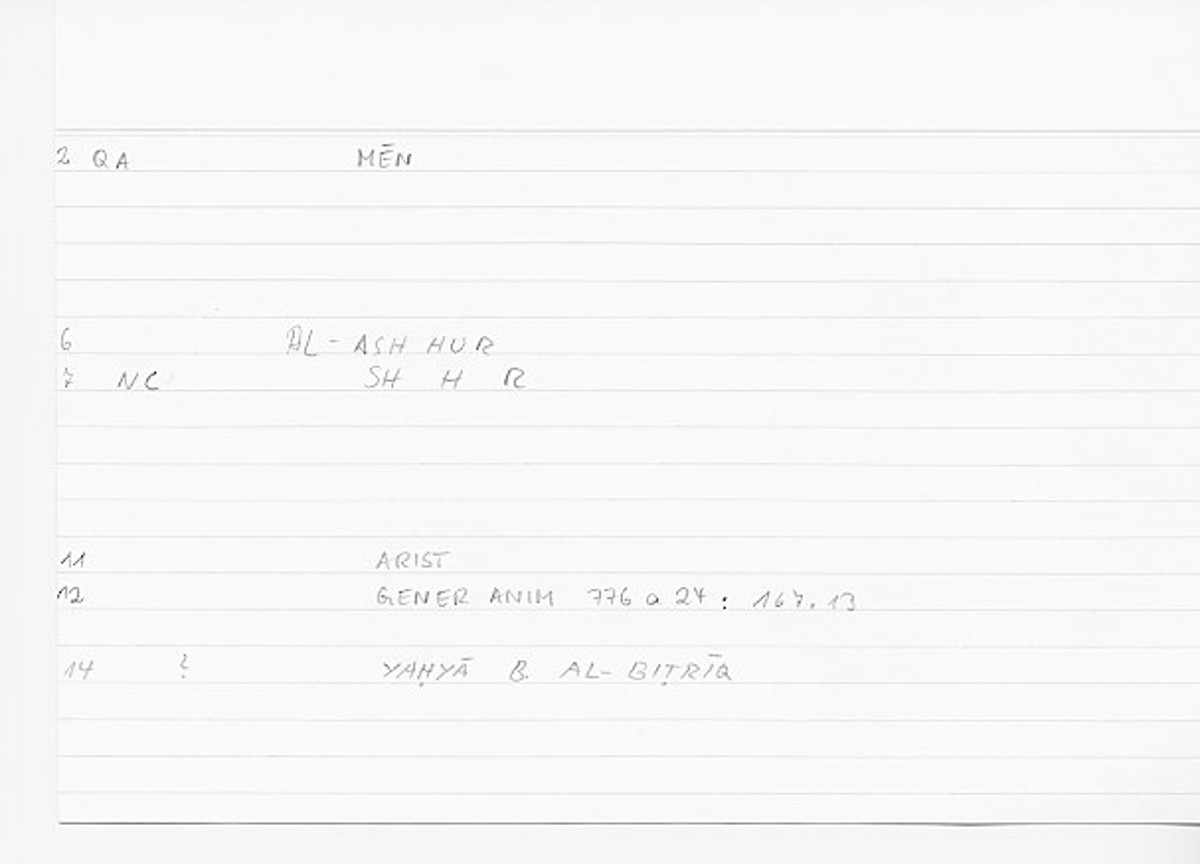 2 QA MĒN
6 AL-ASH HUR
7 NC SH H R
11 ARIST
12 GENER ANIM 776 a 24 : 167.13
14 ? YAḤYĀ B. AL-BIṬRĪQ